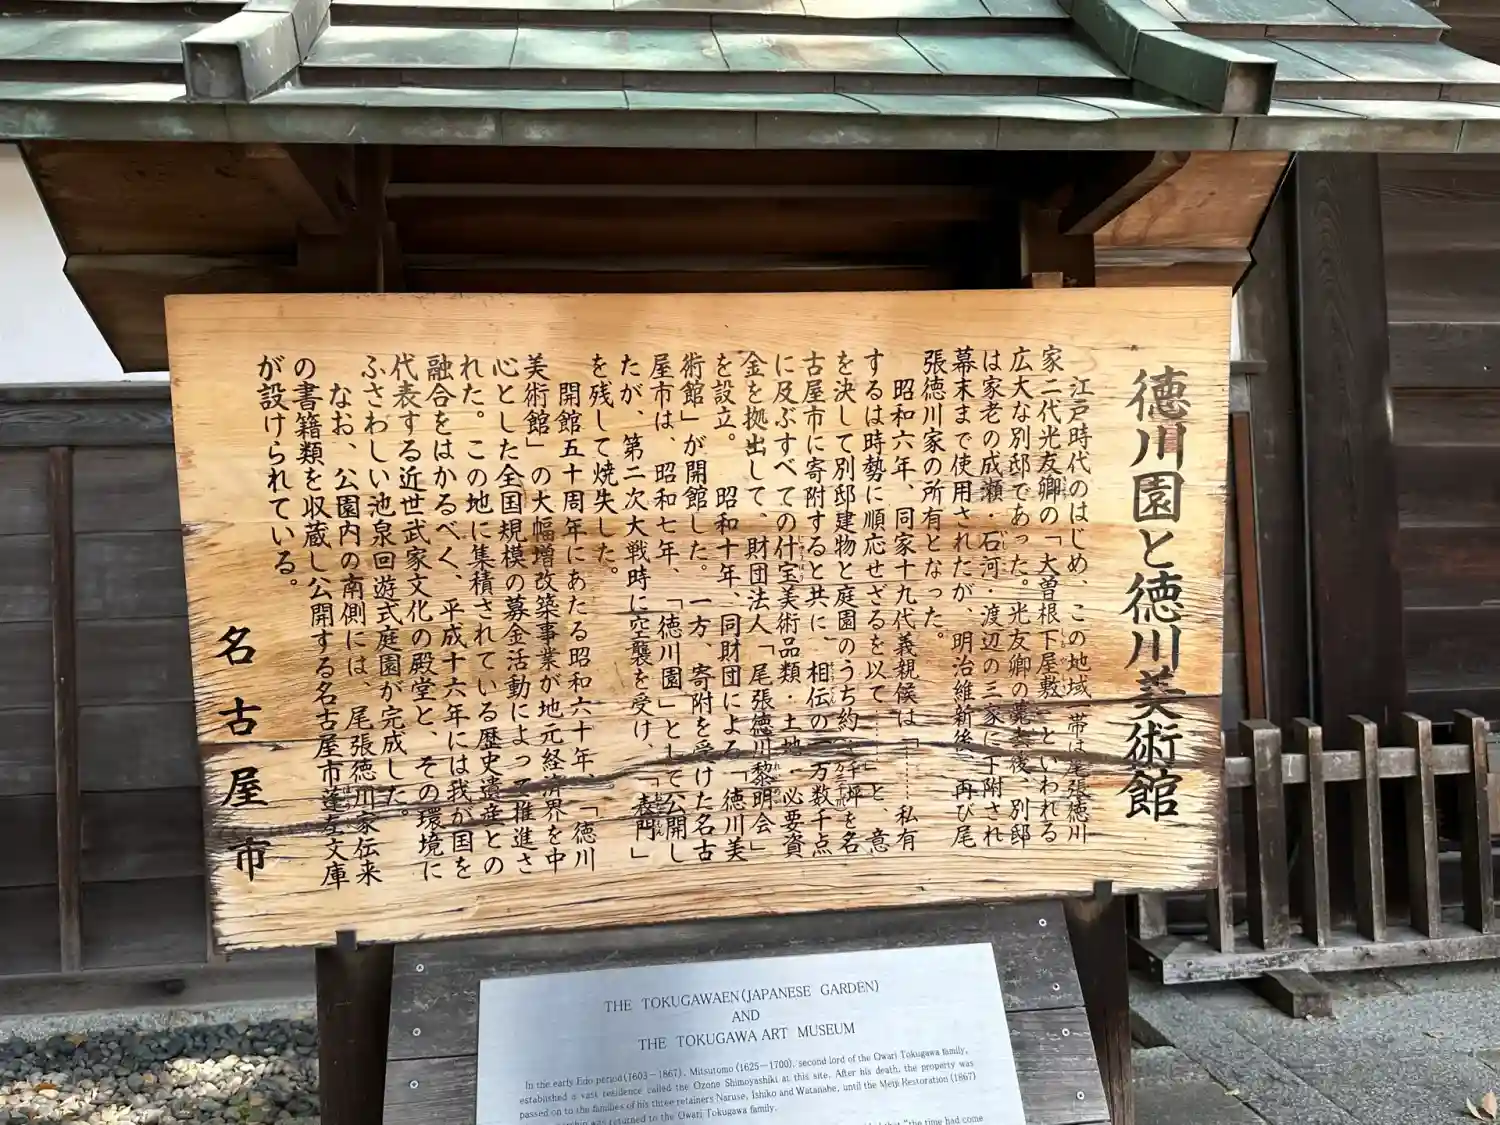 徳川園と徳川美術館
江戸時代のはじめ、この地域一帯は尾張徳川
家二代光友卿の「大曽根下屋敷」といわれる
広大な別邸であった。光友卿の薨去後、別邸
は家老の成瀬・石河・渡辺の三家に下附され
幕末まで使用されたが、明治維新後、再び尾
張徳川家の所有となった。
昭和六年、同家十九代義親候は「……私有
するは時勢に順応せざるを以て……」と、意
を決して別邸建物と庭園のうち約 千坪を名
古屋市に寄附すると共に、相伝の一万数千点
に及ぶすべての什宝美術品類・土地・必要資
金を拠出して、財団法人「尾張徳川黎明会」
を設立。昭和十年、同財団による「徳川美
術館」が開館した。一方、寄附を受けた名古
屋市は、昭和七年、「徳川園」として公開し
たが、第二次大戦時に空襲を受け、「表門」
を残して焼失した。
開館五十周年にあたる昭和六十年、「徳川
美術館」の大幅増改築事業が地元経済界を中
心とした全国規模の募金活動によって推進さ
れた。この地に集積されている歴史遺産との
融合をはかるべく、平成十六年には我が国を
代表する近世武家文化の殿堂と、その環境に
ふさわしい池泉回遊式庭園が完成した。
なお、公園内の南側には、尾張徳川家伝来
の書籍類を収蔵し公開する名古屋市蓬左文庫
が設けられている。
名古屋市
THE TOKUGAWAEN(JAPANESE GARDEN)
AND
THE TOKUGAWA ART MUSEUM
In the early Edo period(1603－1867), Mitsutomo (1625－1700), second lord of the Owari Tokugawa family,
established a vast residence called the Ozone Shimoyashiki at this site. After his death, the property was
passed on to the families of his three retainers Naruse, Ishiko and Watanabe, until the Meiji Restoration (1867)
was returned to the Owari Tokugawa family.
that "the time had come